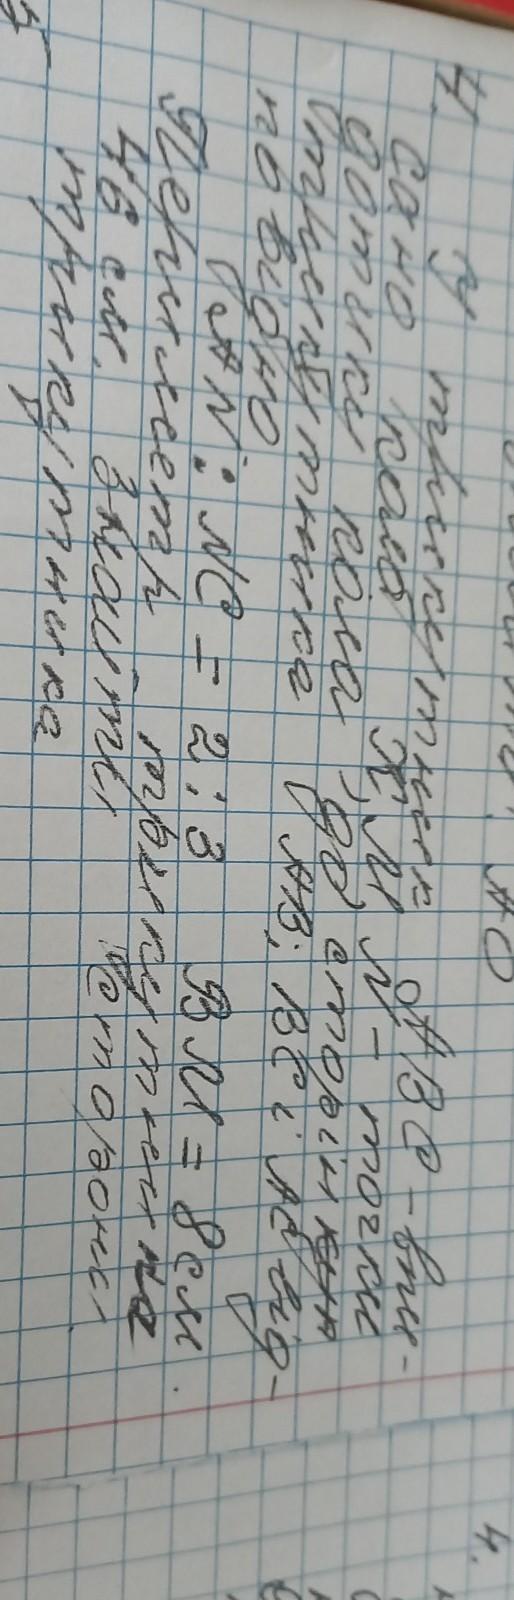 4. У трикутник ABC - впи-
сано коло K, M, N - точки
дотику кола до сторін
трикутника AB, BC і AC від-
повідно
AN : NC = 2 : 3 BM = 8 см.
Периметр трикутника
48 см. Знайти сторони
трикутника
AO
4.
5